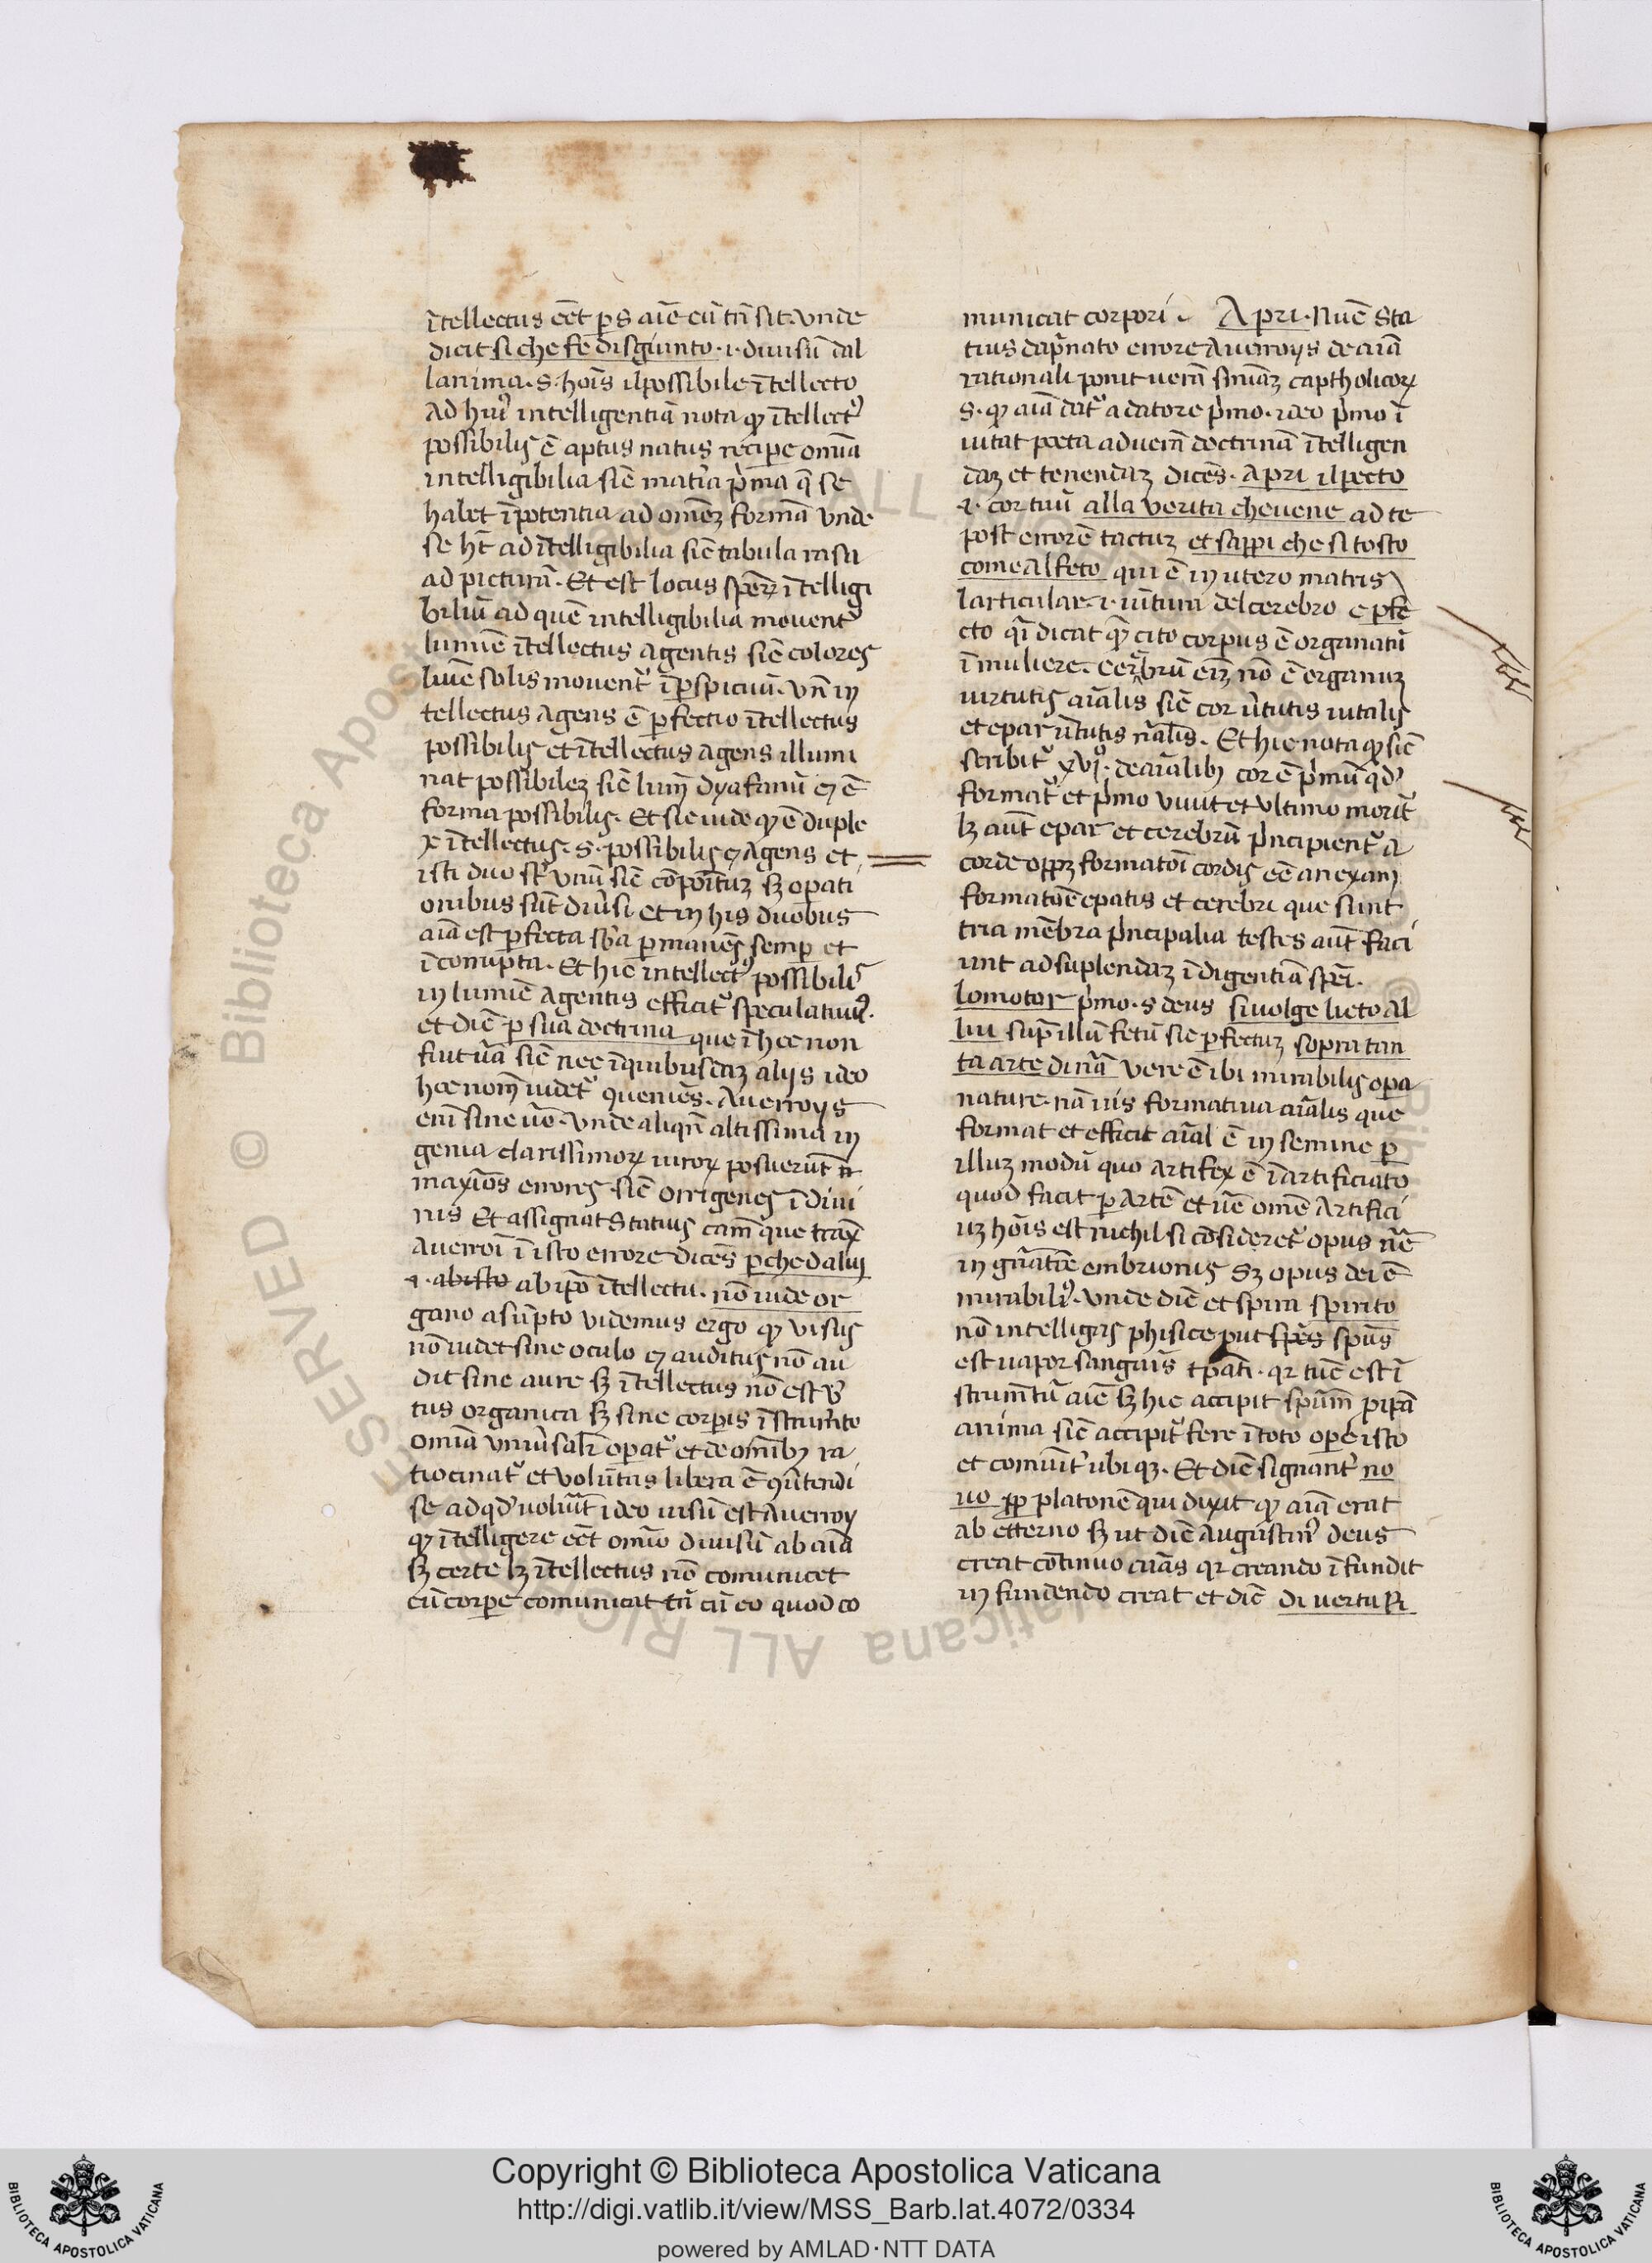 ītellectus eēt ps aīe cū tn̄ sit. vnde
dicit si che fe disgiunto .i. diuisū dal
lanima .s. hoīs il possibile ītellecto
Ad hui9 intelligentiā nota qͥ ītellect9
possibilis ē aptus natus recipe omīa
intelligibilia sic̄ matīa pͥma q̄ se
habet ī potentia ad omēꝫ formā vnde
se hꝫ ad ītelligibilia sic̄ tabula rasa
ad picturā. Et est locus spērꝫ ītelligi
biliū ad quē intelligibilia mouent᷑
lumīe ītellectus agentis sic̄ colores
lumīe solis mouent᷑ ī pspicuū. vn̄ in
tellectus agens ē pfectio ītellectus
possibilis et ītellectus agens illumi
nat possibileꝫ sic̄ lum̄ dyafanū ⁊ ē
forma possibilis. Et sic uide qͥ ē duple
x ītellectus .s. possibilis ⁊ agens et
isti duo st̄ vnū sic̄ cōpoītuꝫ sꝫ opati
onibus sūt diūsi et in his duobus
aīa est pfecta sb̄a pmanēs semp et
īcorrupta. Et hic intellect9 possibilis
in lumīe agentis efficit᷑ speculatiu9.
et dic̄ p sua doctrina que ī hoc non
fuit ūa sic̄ nec ī quibusdaꝫ alijs ideo
hoc nom̄ uidet᷑ queniēs. Averroys
enī sine ūo. vnde aliqn̄ altissima in
genia clarissimoꝝ uiroꝝ posuerūt
maxīos errores sic̄ origenes ī diui
nis Et assignat Statius cam̄ que trax̄
Averroī ī isto errore dicēs pche da lui
.i. abisto ab ipo ītellectu. nō uide or
gano asūpto videmus ergo qͥ visus
nō uidet sine oculo ⁊ auditus nō au
dit sine aure sꝫ ītellectus nō est v̄
tus organica sꝫ sine corpis īstrumēto
omīa vniūsalr̄ opat᷑ et de omībꝫ ra
tiocinat᷑ et voluntas libera ē
se ad qd᷑ uolūit ideo uisū est Averroy
qͥ ītelligere eēt omīo diuisū ab aīa
sꝫ certe lꝫ ītellectus nō comunicet
cū corpe comunicat tn̄ cū eo quod co
municat corpori. Apri. Nūc Sta
tius dapnato errore Averroys de aīa
rationali ponit uerā sn̄iaꝫ captholicoꝝ
.s. qͥ aīa dat᷑ a datore pͥmo. ideo pͥmo ī
uitat poeta ad uerā doctrinā ītelligen
daꝫ et tenendaꝫ dicēs. apri il pecto
.i. cor tuū alla verita che vene ad te
post errorē tactuꝫ et sappi che si tosto
come al feto qui ē in utero matris
larticular .i. iūtura del cerebro e pfe
cto qͥ dicat qͥ cito corpus ē organatū
ī muliere. Cerebrū eīꝫ nō ē organuꝫ
uirtutis aīalis sic̄ cor ūtutis uitalis
et epar ūtutis nālis. Et hic nota qͥ sic̄
scribit᷑ xvjͦ. de aīalibꝫ cor ē pͥmū qd᷑
format᷑ et pͥmo viuit et vltimo morit᷑
lꝫ aūt epar et cerebrū pͥncipient᷑ a
corde oꝑꝫ formatoī cordis eē anexam
formatoē epatis et cerebri que sunt
tria mēbra pͥncipalia testes aūt faci
unt ad suplendaꝫ īdigentiā spēi.
lo motor pͥmo .s. deus si uolge lieto al
lui sup illū fetū sic pfectuꝫ sopra tan
ta arte di nā vere ē ibi mirabilis opa
nature. nā uis formatiua aīalis que
format et efficit aīal ē in semine p
illuꝫ modū quo artifex ē ī artificiato
quod facit p artē et ūe omē artifici
uꝫ hoīs est nichil si cōsideret᷑ opus nr̄e
in gn̄atiōe embrionis Sꝫ opus dei ē
mirabili9. vnde dic̄ et spira spirito
nō intelligas phisice put spēs spūs
est uapor sanguīs qr tūc est ī
strumtū aīe sꝫ hic accipit spūm pipā
anima sic̄ accipit᷑ fere ī toto ope isto
et comūit᷑ ubiqꝫ. Et dic̄ signant᷑ no
uo ꝓp platonē qui dixit qͥ aīa erat
ab etterno sꝫ ut dic̄ Augustin9 deus
creat cōtinuo aīas qr creando īfundit
infundendo creat et dic̄ di vertu ri
RESERVED © Biblioteca Apostolica Vaticana ALL RIGHTS
Copyright © Biblioteca Apostolica Vaticana
http://digi.vatlib.it/view/MSS_Barb.lat.4072/0334
powered by AMLAD·NTT DATA
BIBLIOTECA APOSTOLICA VATICANA
BIBLIOTECA APOSTOLICA VATICANA